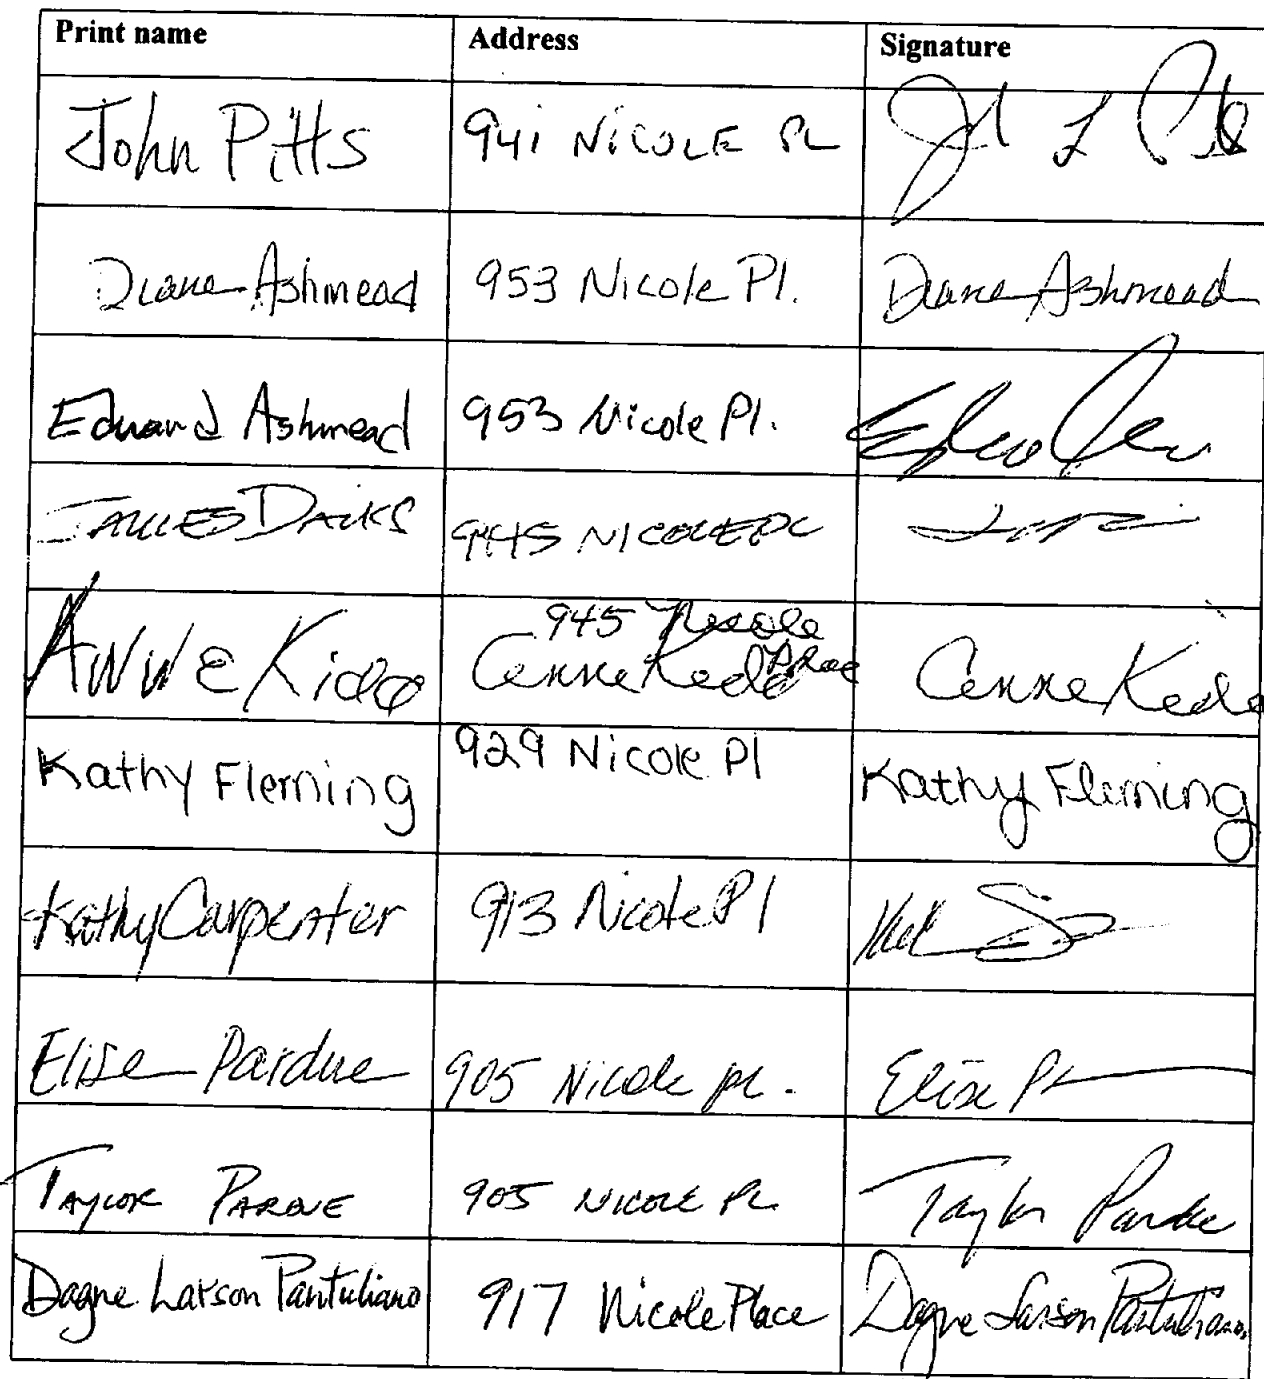 Print name Address Signature
John Pitts 941 NICOLE PL John L Pitts
Diane Ashmead 953 Nicole Pl. Diane Ashmead
Edward Ashmead 953 Nicole Pl.
JAMES 945 NICOLE PL
945 Nicole
ANNE Kidd Anne Kidd Place Anne Kidd
Kathy Fleming 929 Nicole Pl Kathy Fleming
Kathy Carpenter 913 Nicole Pl
Elise Pardue 905 Nicole pl. Elise P
TAYLOR PARDUE 905 NICOLE PL Taylor Pardue
Dagne Larson Pantuliano 917 Nicole Place Dagne Larson Pantuliano